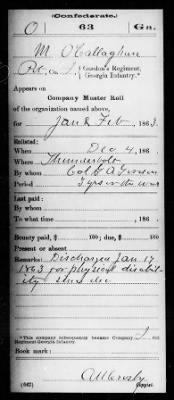 (Confederate.)
O 63 Ga.
M. O'Callaghan
Pvt, Co. I, Gordon's Regiment, Georgia Infantry.*
Appears on
Company Muster Roll
of the organization named above,
for Jan & Feb, 1863.
Enlisted:
When Dec 4, 186
Where Thunderbolt
By whom Col G A Gordon
Period 3 yrs or the war
Last paid:
By whom
To what time , 186
Bounty paid, $ 100; due, $ 100
Present or absent
Remarks: Discharged Jan 17
1863 for physical disabil-
ity
*This company subsequently became Company 63
Regiment Georgia Infantry.
Book mark:
(642) Copyist.